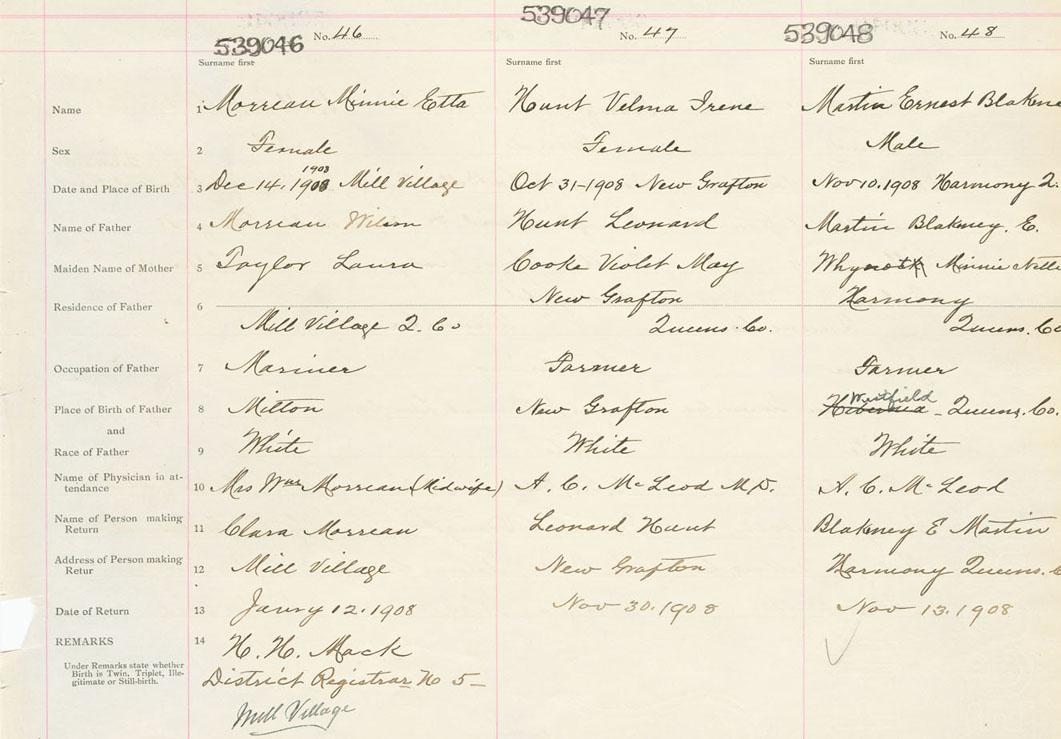 539046 No. 46
539047 No. 47
539048 No. 48
Surname first
Surname first
Surname first
Name 1 Morreau Minnie Etta
Hunt Velma Irene
Martin Ernest Blakne
Sex 2 Female
Female
Male
1908
Date and Place of Birth 3 Dec 14, 1908 Mill Village
Oct 31-1908 New Grafton
Nov 10. 1908 Harmony Q.
Name of Father 4 Morreau Wilson
Hunt Leonard
Martin Blakney. E.
Maiden Name of Mother 5 Taylor Laura
Cooke Violet May
Whynott Minnie Nelli
Residence of Father 6
Mill Village Q. Co
New Grafton
Queens. Co.
Harmony
Queens. Co
Occupation of Father 7 Mariner
Farmer
Farmer
Place of Birth of Father 8 Milton
New Grafton
Westfield
- Queens. Co.
and
Race of Father 9 White
White
White
Name of Physician in at-
tendance 10 Mrs Wm Morreau (Midwife)
A. C. McLeod M.D.
A. C. McLeod
Name of Person making
Return 11 Clara Morreau
Leonard Hunt
Blakney E Martin
Address of Person making
Retur 12 Mill Village
New Grafton
Harmony Queens. C
Date of Return 13 Janry 12. 1908
Nov 30. 1908
Nov 13. 1908
REMARKS 14 H. H. Mack
Under Remarks state whether
Birth is Twin, Triplet, Ille-
gitimate or Still-birth.
District Registrar No 5-
Mill Village